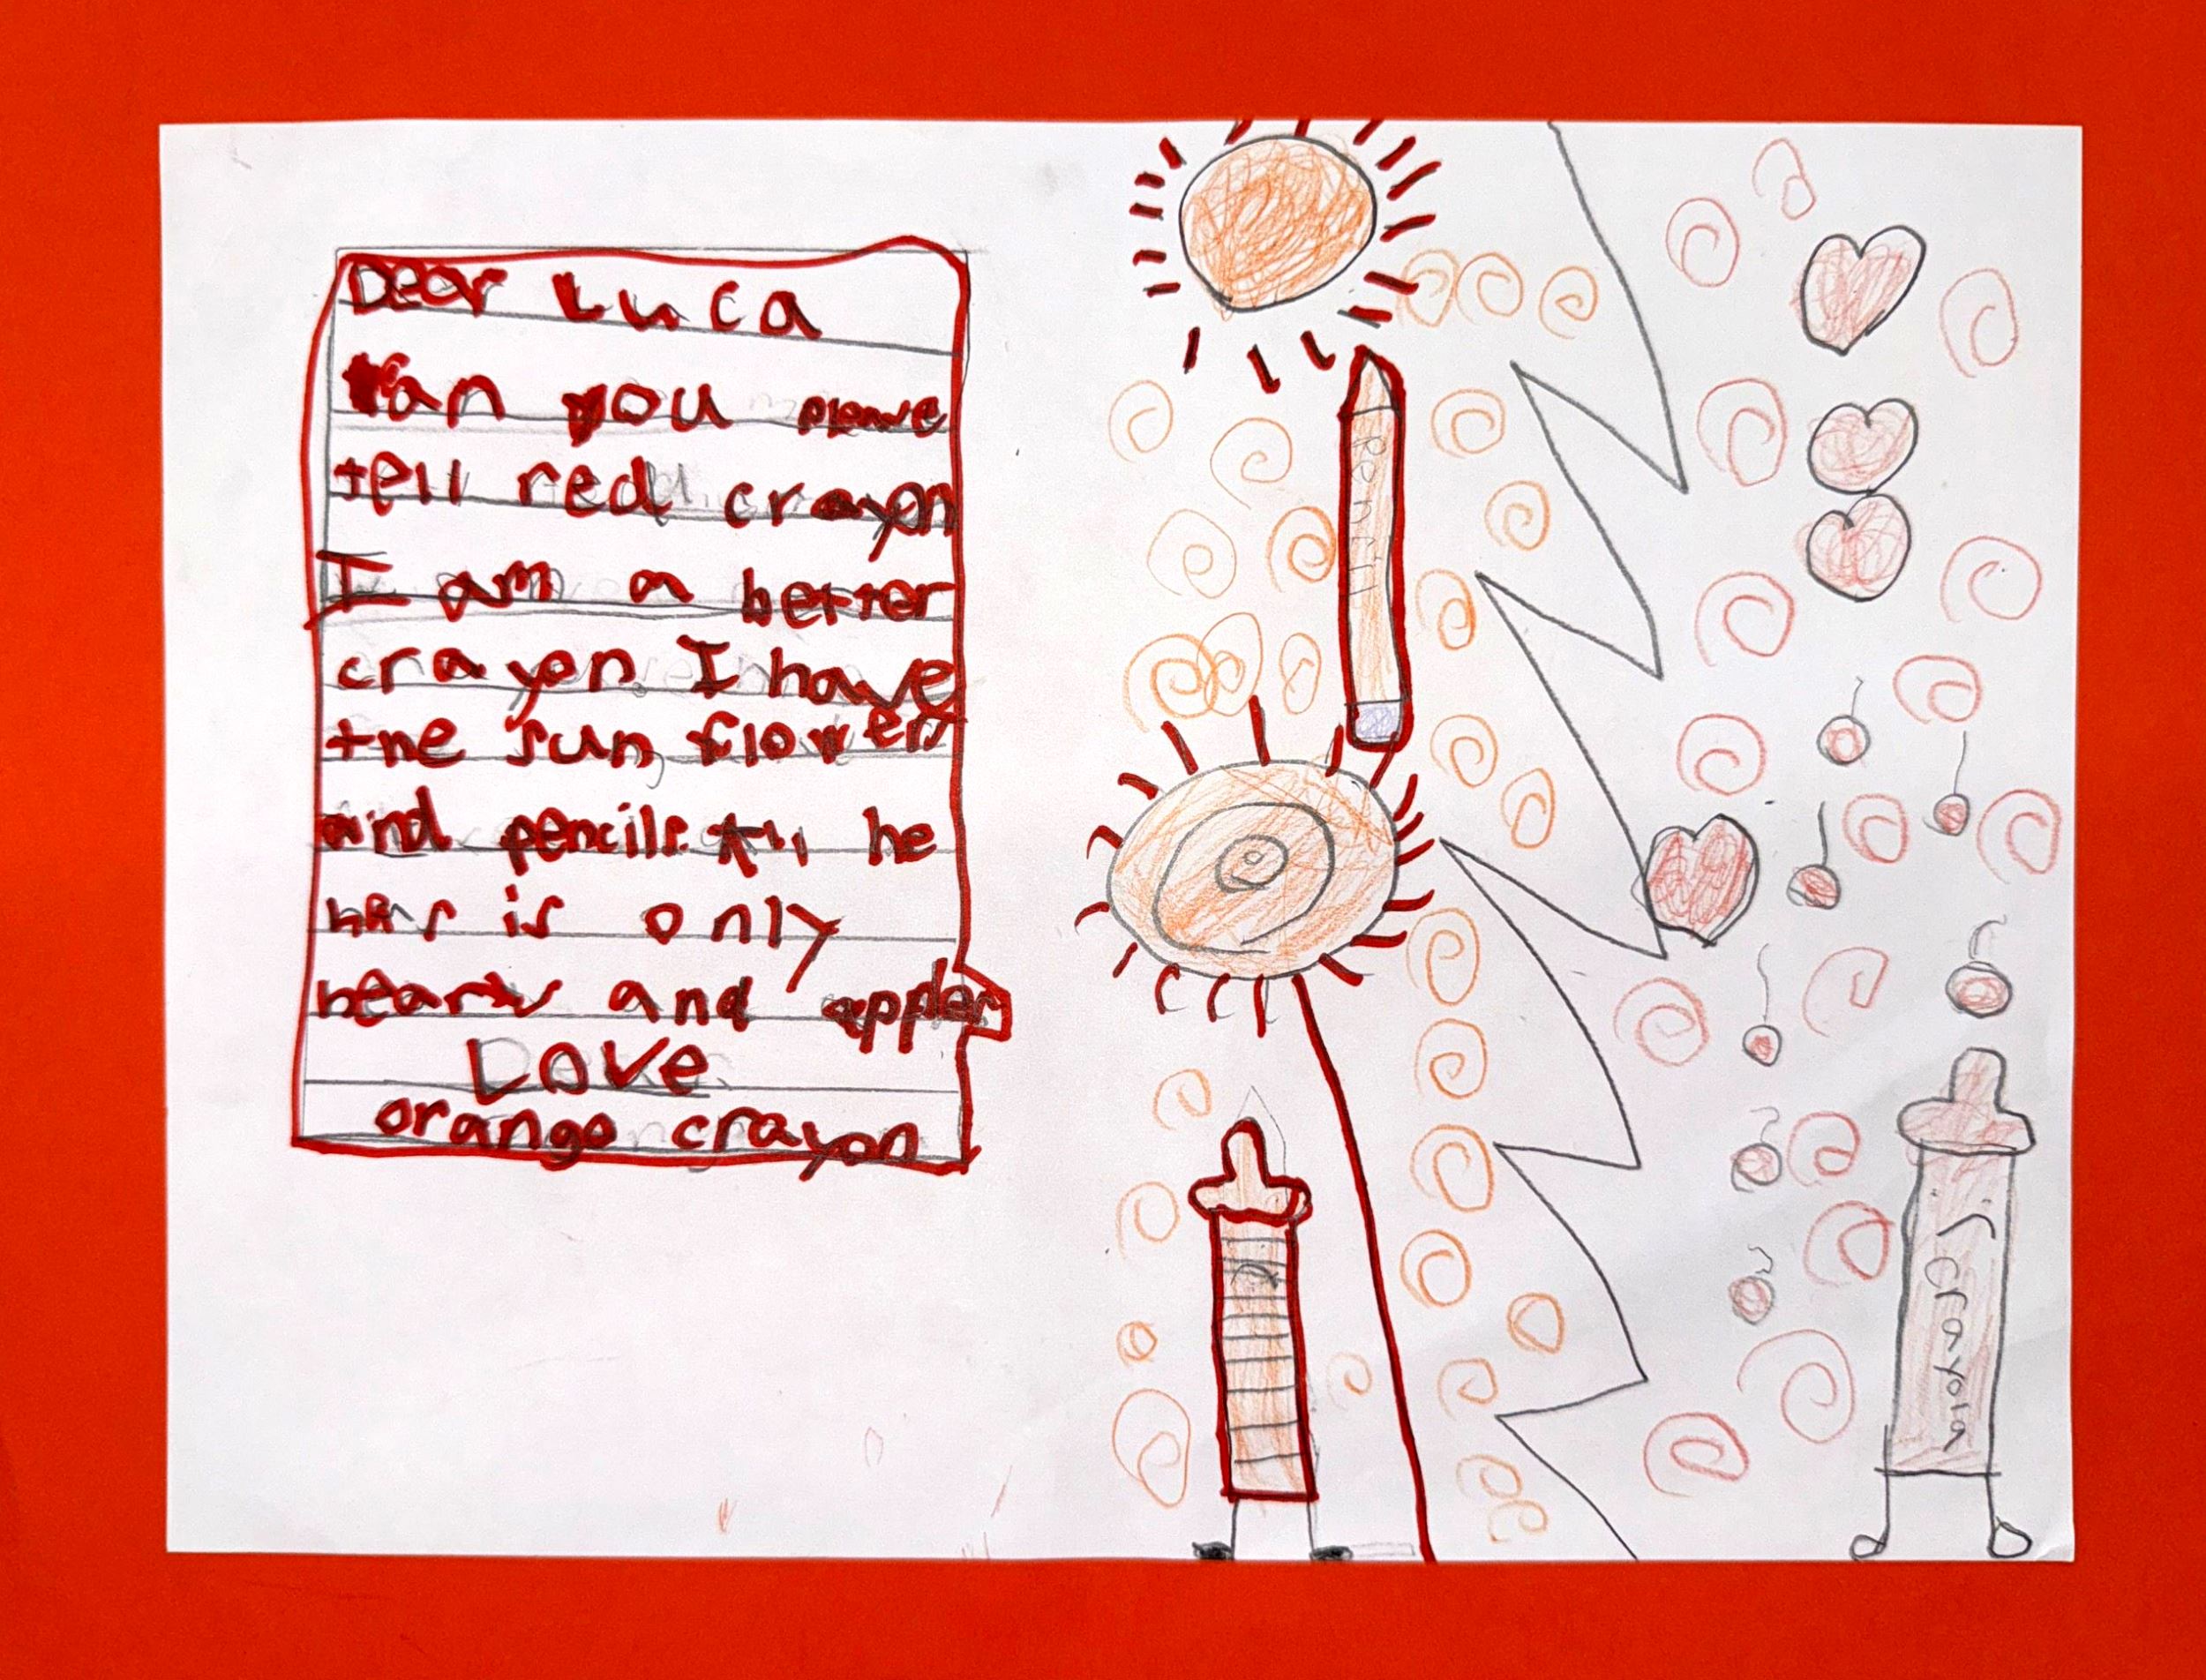 Dear Luca
Can you please
tell red crayon
I am a better
crayon. I have
the sun, flowers
and pencils. All he
has is only
hearts and apples
Love
orange crayon
Pencil
C
Crayon